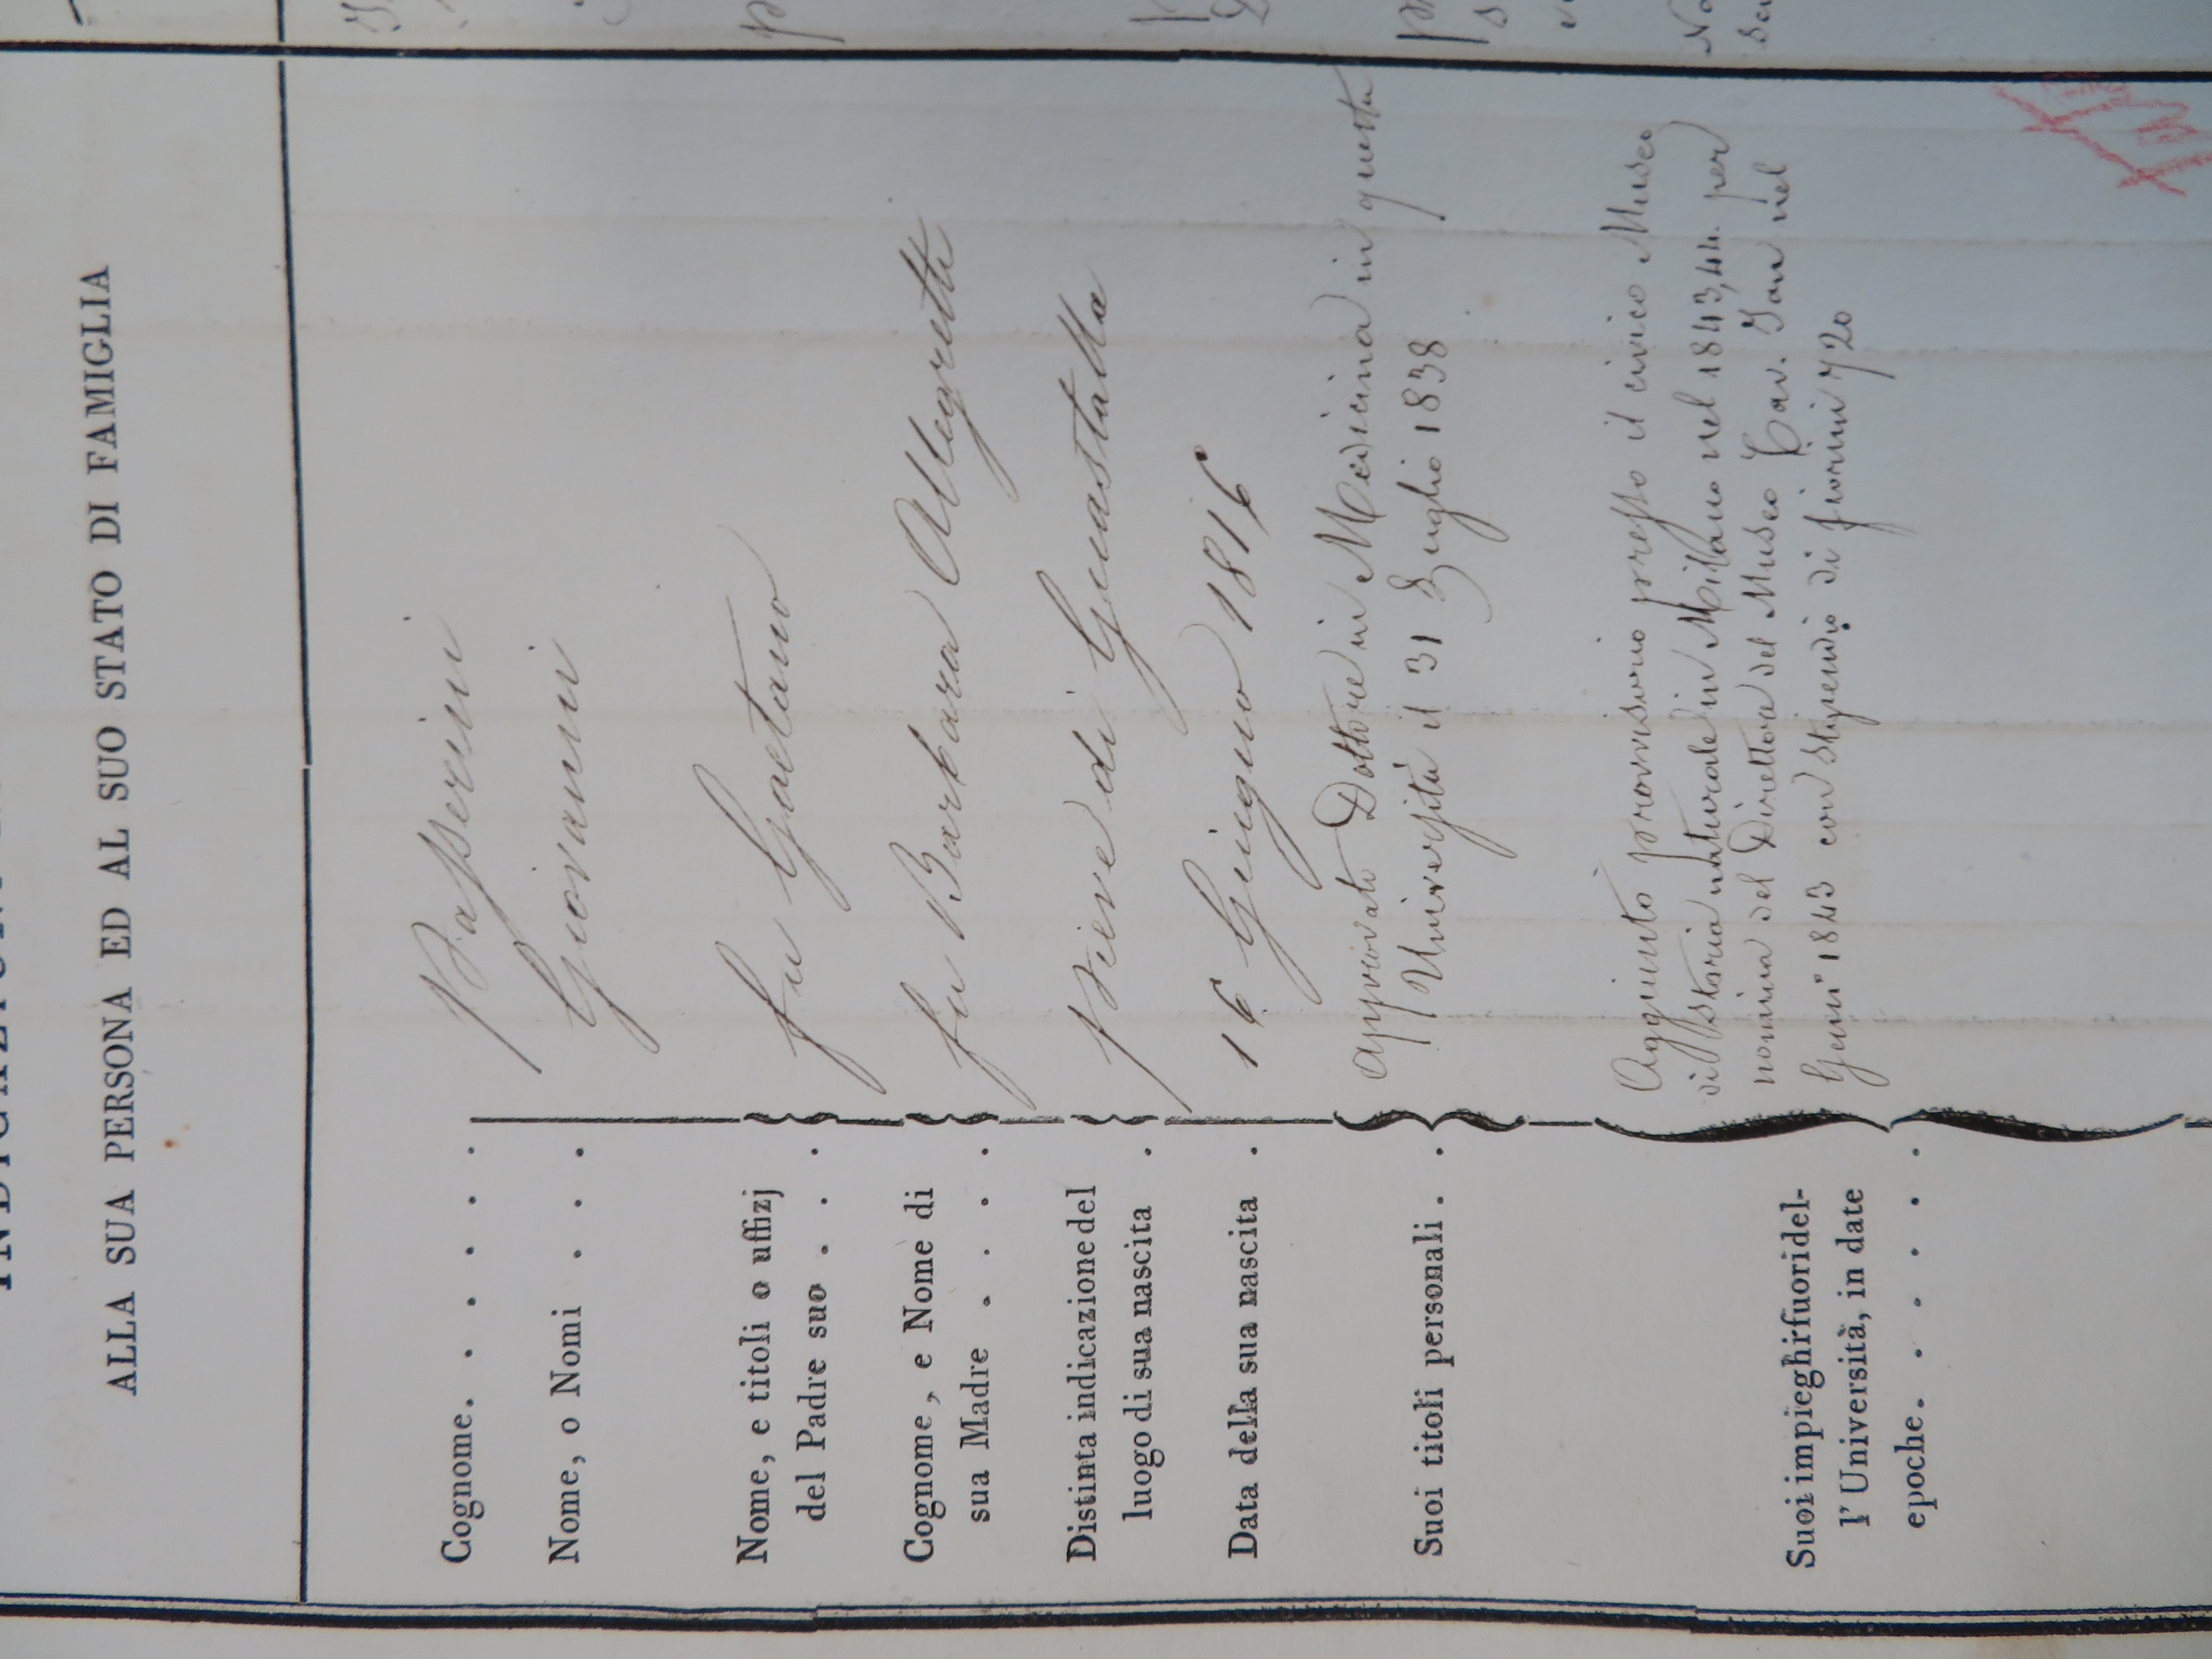 ALLA SUA PERSONA ED AL SUO STATO DI FAMIGLIA
Cognome. . . . . . Passerini
Nome, o Nomi . . . . Giovanni
Nome, e titoli o uffizj
del Padre suo . . . fu Gaetano
Cognome, e Nome di
sua Madre . . . . fu Barbara Allegretti
Distinta indicazione del
luogo di sua nascita . Pieve di Guastalla
Data della sua nascita . 16 Giugno 1816
Suoi titoli personali . . approvato Dottore in Medicina in questa
Università il 31 Luglio 1838
Suoi impieghi fuori del-
l' Università, in date
epoche. . . . . .
Aggiunto provvisorio presso il civico Museo
di Storia naturale in Milano nel 1843,44. per
nomina del Direttore del Museo Cav. Jan nel
1843 con stipendio di fiorini 720